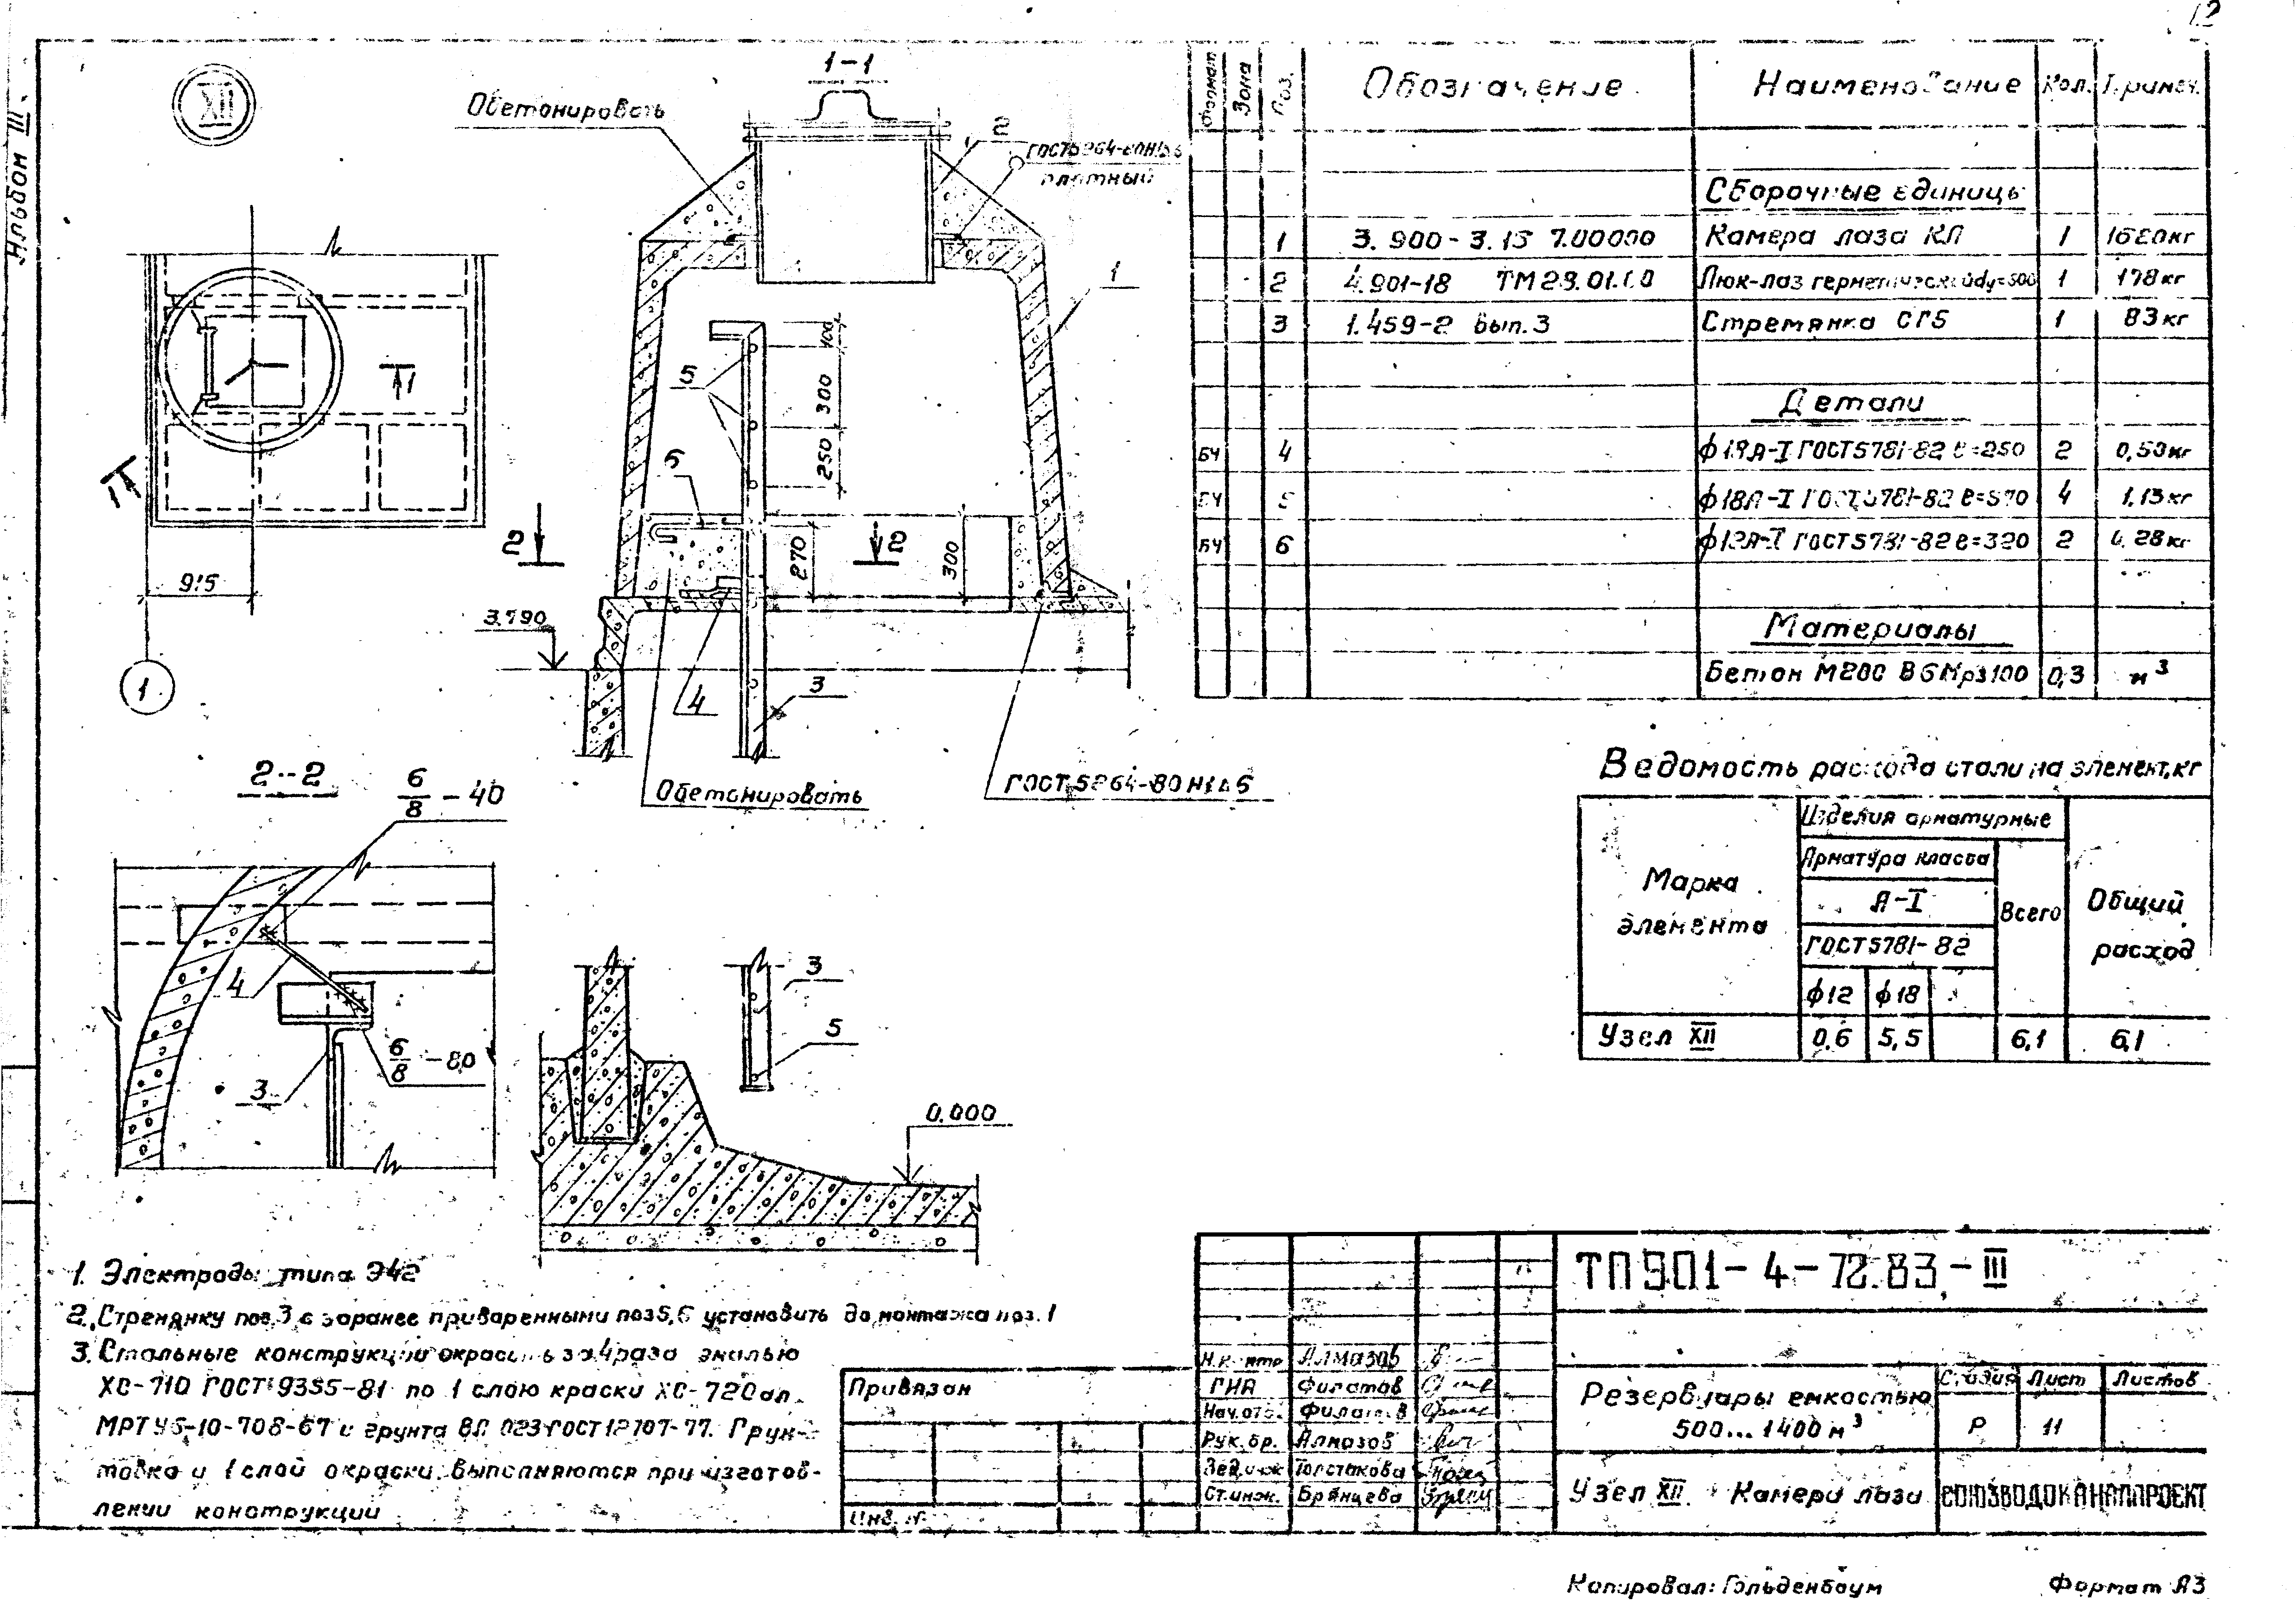 12
Альбом III
XII
1-1
Обетонировать
2
ГОСТ 5264-80
плотный
1
5
6
100
300
250
270
300
2
2
1
1
915
1
3.790
4
3
Обетонировать
ГОСТ 5264-80 Н1 Δ6
2-2
6/8 - 40
4
6/8 - 80
3
3
5
0.000
Формат Зона Поз. Обозначение Наименование Кол. Примеч.
Сборочные единицы
1 3.900-3. 15 7.00000 Камера лаза КЛ 1 1620кг
2 4.901-18 ТМ 28.01.00 Люк-лаз герметический 1 178кг
3 1.459-2 Вып.3 Стремянка СГ5 1 83кг
Детали
БЧ 4 ф18А-I ГОСТ5781-82 ℓ=250 2 0,50кг
БЧ 5 ф18А-I ГОСТ5781-82 ℓ=570 4 1,13кг
БЧ 6 ф12А-I ГОСТ5781-82 ℓ=320 2 0,28кг
Материалы
Бетон М200 В6 Мрз100 0,3 м³
Ведомость расхода стали на элемент, кг
Марка элемента
Изделия арматурные
Арматура класса
А-I
ГОСТ5781-82
ф12 ф18
Всего
Общий расход
Узел XII 0,6 5,5 6,1 6,1
1. Электроды типа Э42
2. Стремянку поз.3 с заранее приваренными поз5,6 установить до монтажа поз.1
3. Стальные конструкции окрасить за 4 раза эмалью
ХС-710 ГОСТ 9355-81 по 1 слою краски ХС-720 ал.
МРТУ6-10-708-67 и грунта ВЛ 023 ГОСТ 12707-77. Грун-
товка и 1 слой окраски выполняются при изготов-
лении конструкции
Привязан
Инв. №
Н.контр Алмазов
ГИП Филатов
Нач.отд. Филатов
Рук.бр. Алмазов
Вед.инж Толстакова
Ст.инж. Брянцева
ТП 901-4-72.83-III
Резервуары емкостью
500...1400 м³
Стадия Лист Листов
Р 11
Узел XII. Камера лаза
СОЮЗВОДОКАНАЛПРОЕКТ
Копировал: Гольденбаум
Формат А3